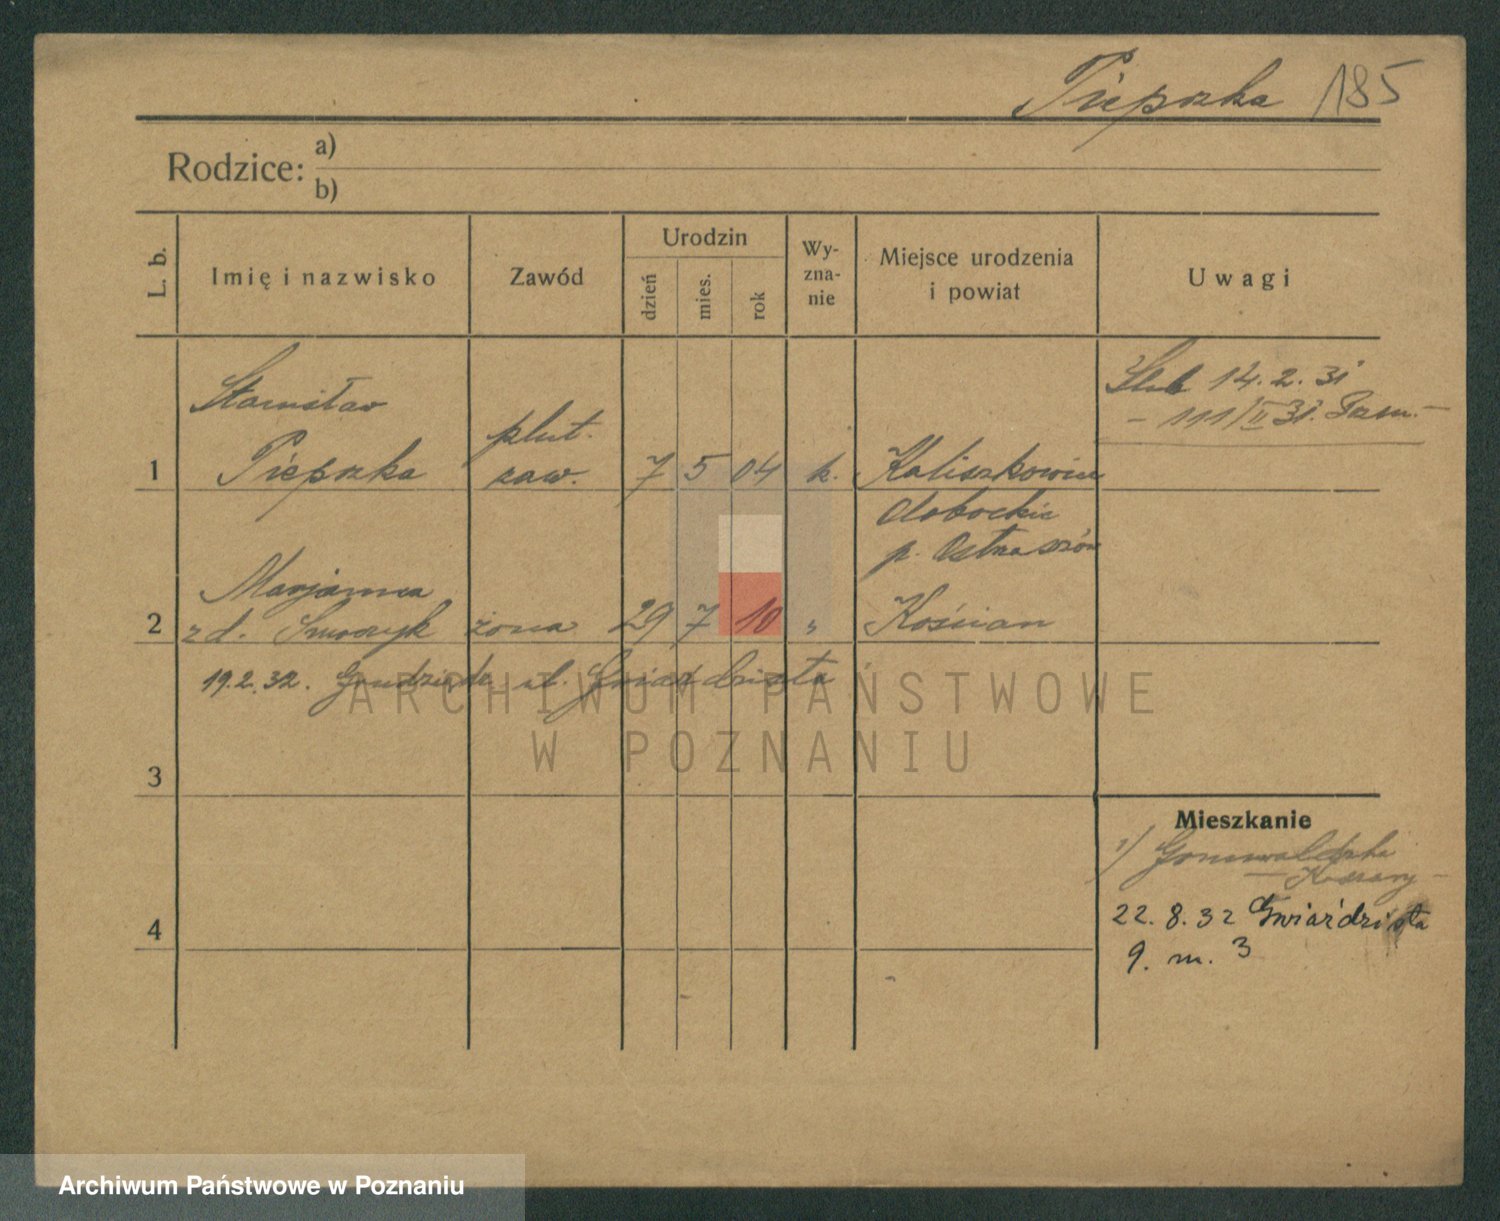 Pieprzka 185
Rodzice: a)
b)
L. b.
Imię i nazwisko
Zawód
Urodzin
dzień
mies.
rok
Wy-
zna-
nie
Miejsce urodzenia
i powiat
Uwagi
1
Stanisław
Pieprzka
plut.
zaw.
7 5 04
k.
Kaliszkowice
Ołobockie
p.
Ślub 14.2.31
2
Marjanna
z d.
żona
29 7 10
"
Kościan
19.2.32. Grudziądz ul. Gwiaździsta
3
4
Mieszkanie
1) Grunwaldzka
Koszary -
22. 8. 32 Gwiaździsta
9. m. 3
ARCHIWUM PAŃSTWOWE
W POZNANIU
Archiwum Państwowe w Poznaniu